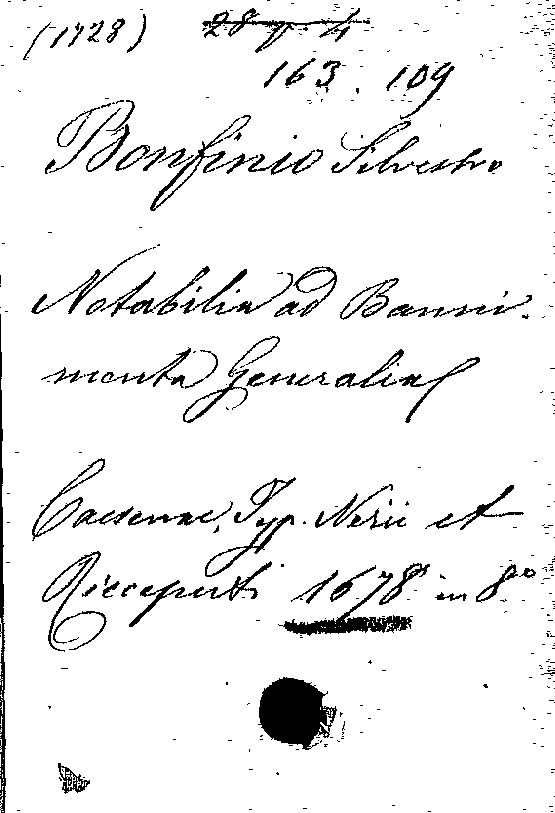 (1728) 28 9. 4
163. 109
Bonfinio Silvestro
Notabilia ad Banni-
menta Generalia
Caesenae, Typ. Nerii et
Ricceputi 1678 in 8º